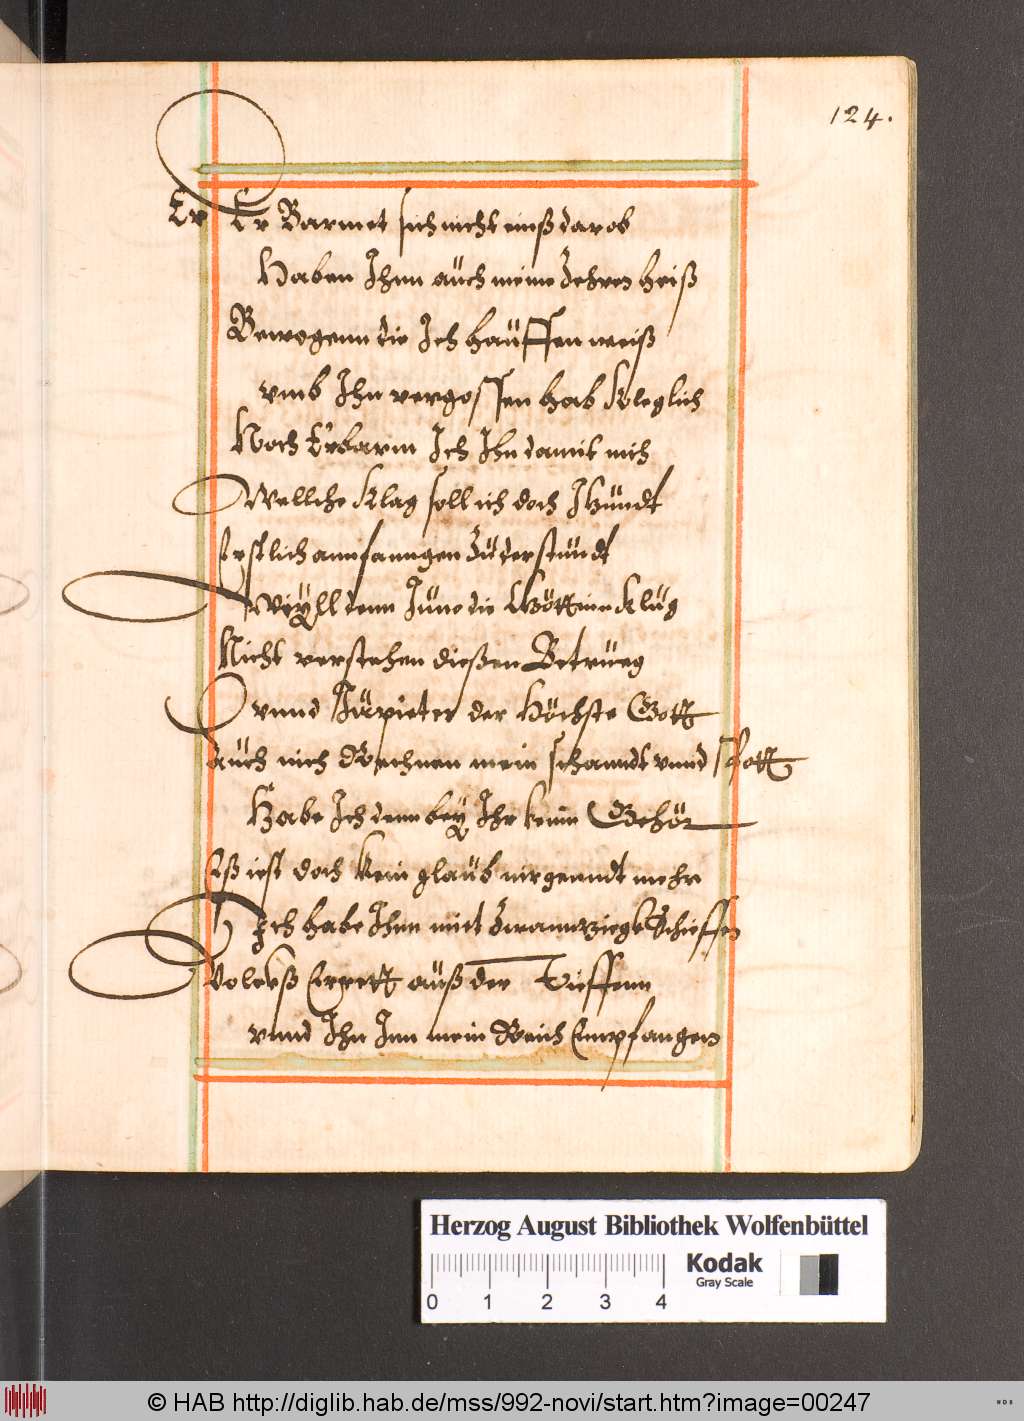 124.
Er Er Barmet sich nicht einß darob
Haben Ihnn auch meine Zehren heiß
Bewogenn die Ich hauffen weiß
vmb Ihn vergossen hab kleglich
Noch Erbarm Ich Ihn damit mich
Wellche klag soll ich doch Itzundt
Erstlich annfanngen Zu der stundt
Weyll denn Juno die Göttinn klug
Nicht verstehen dießen Betrueg
vnnd Jupieter der Höchste Gott
auch nich Rechnen mein schanndt vnnd spott
Habe Ich denn bey Ihr keinn Gehör
Eß ist doch kein glaub nirgenndt mehr
Ich habe Ihnn mit Zwannzigk Schieffen
Volckß Errett auß der Tieffenn
vnnd Ihn Inn mein Reich Empfangen
Herzog August Bibliothek Wolfenbüttel
Kodak
Gray Scale
0 1 2 3 4
© HAB http://diglib.hab.de/mss/992-novi/start.htm?image=00247